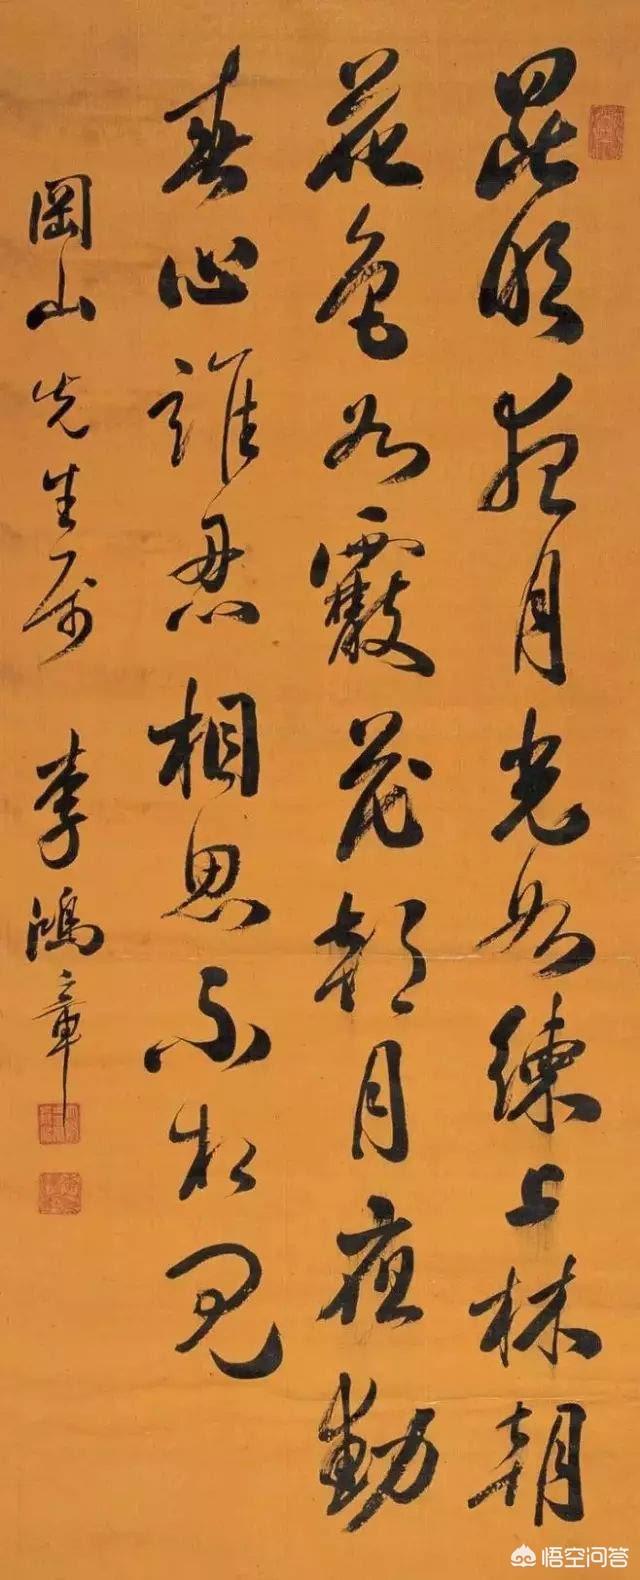 昆明夜月光如練上林朝
花色如霰花朝月夜動
春心誰忍相思不相見
岡山先生屬 李鴻章
悟空问答